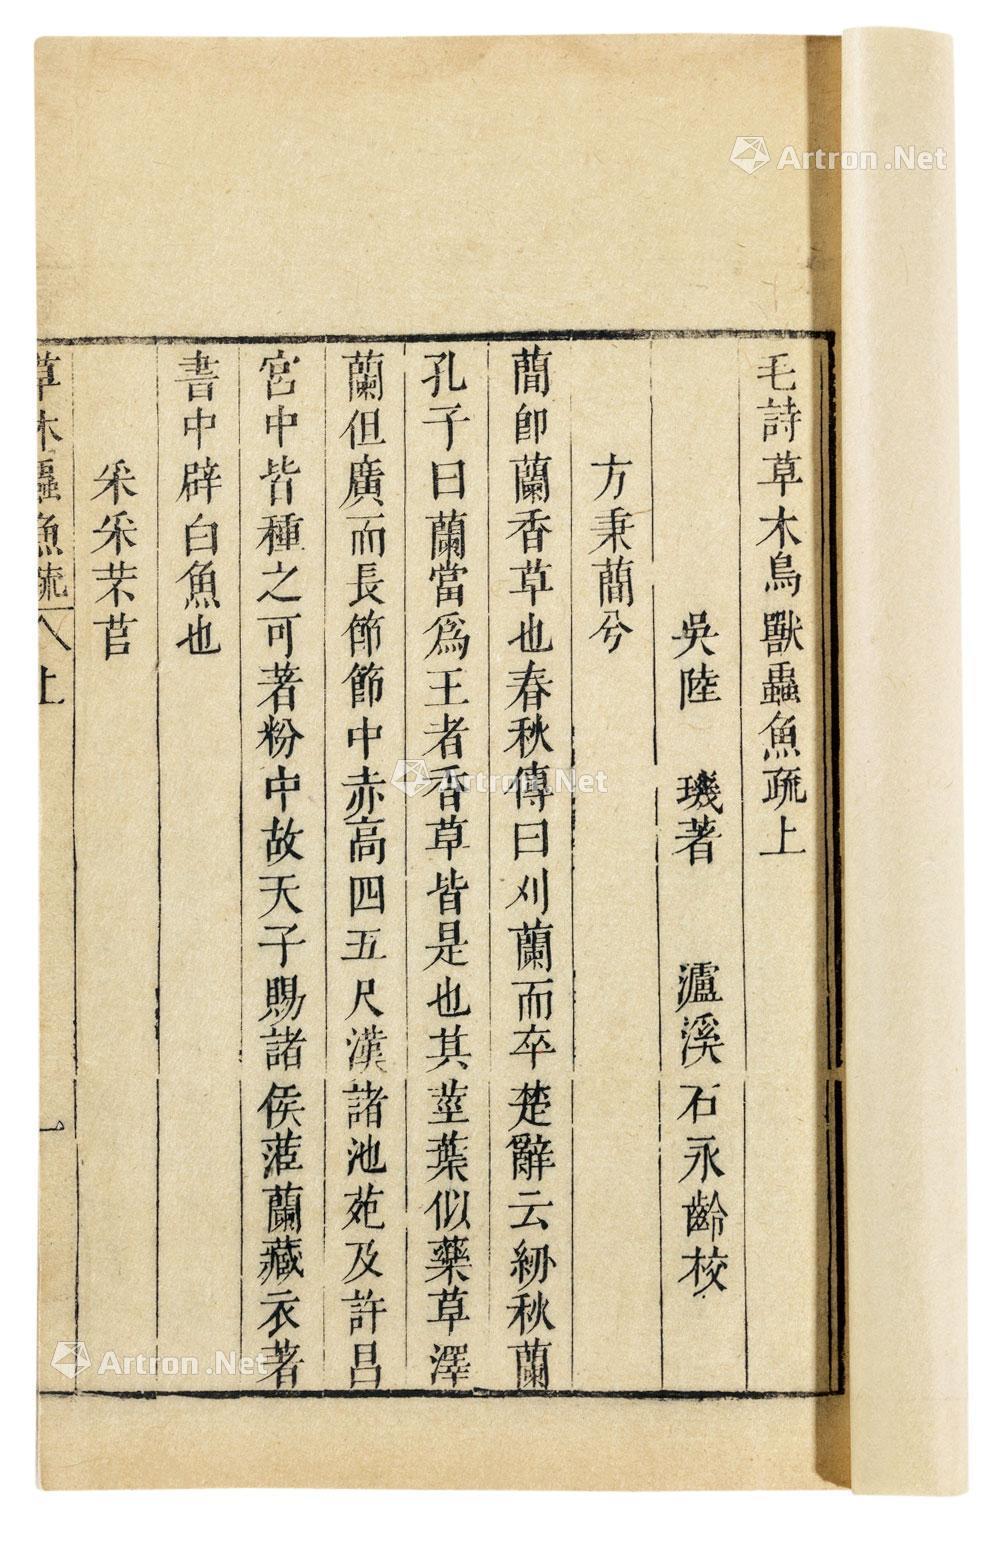 毛詩草木鳥獸蟲魚疏上
吳陸 璣著 瀘溪石永齡校
方秉蕑兮
蕑卽蘭香草也春秋傳曰刈蘭而卒楚辭云紉秋蘭
孔子曰蘭當爲王者香草皆是也其莖葉似藥草澤
蘭但廣而長節節中赤高四五尺漢諸池苑及許昌
宮中皆種之可著粉中故天子賜諸侯茝蘭藏衣著
書中辟白魚也
采采芣苢
草木蟲魚疏 上
一
Artron.Net
Artron.Net
Artron.Net